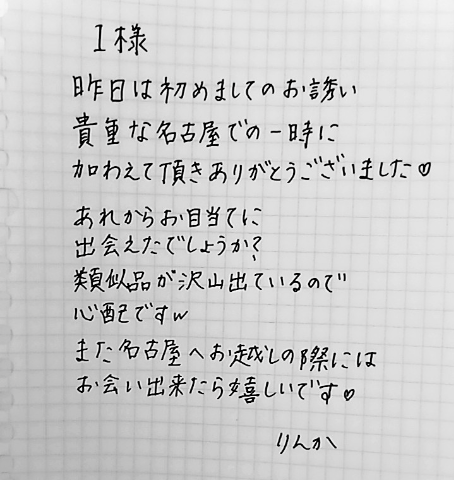 I様
昨日は初めましてのお誘い
貴重な名古屋での一時に
加わえて頂きありがとうございました♡
あれからお目当てに
出会えたでしょうか?
類似品が沢山出ているので
心配ですw
また名古屋へお越しの際には
お会い出来たら嬉しいです♡
りんか